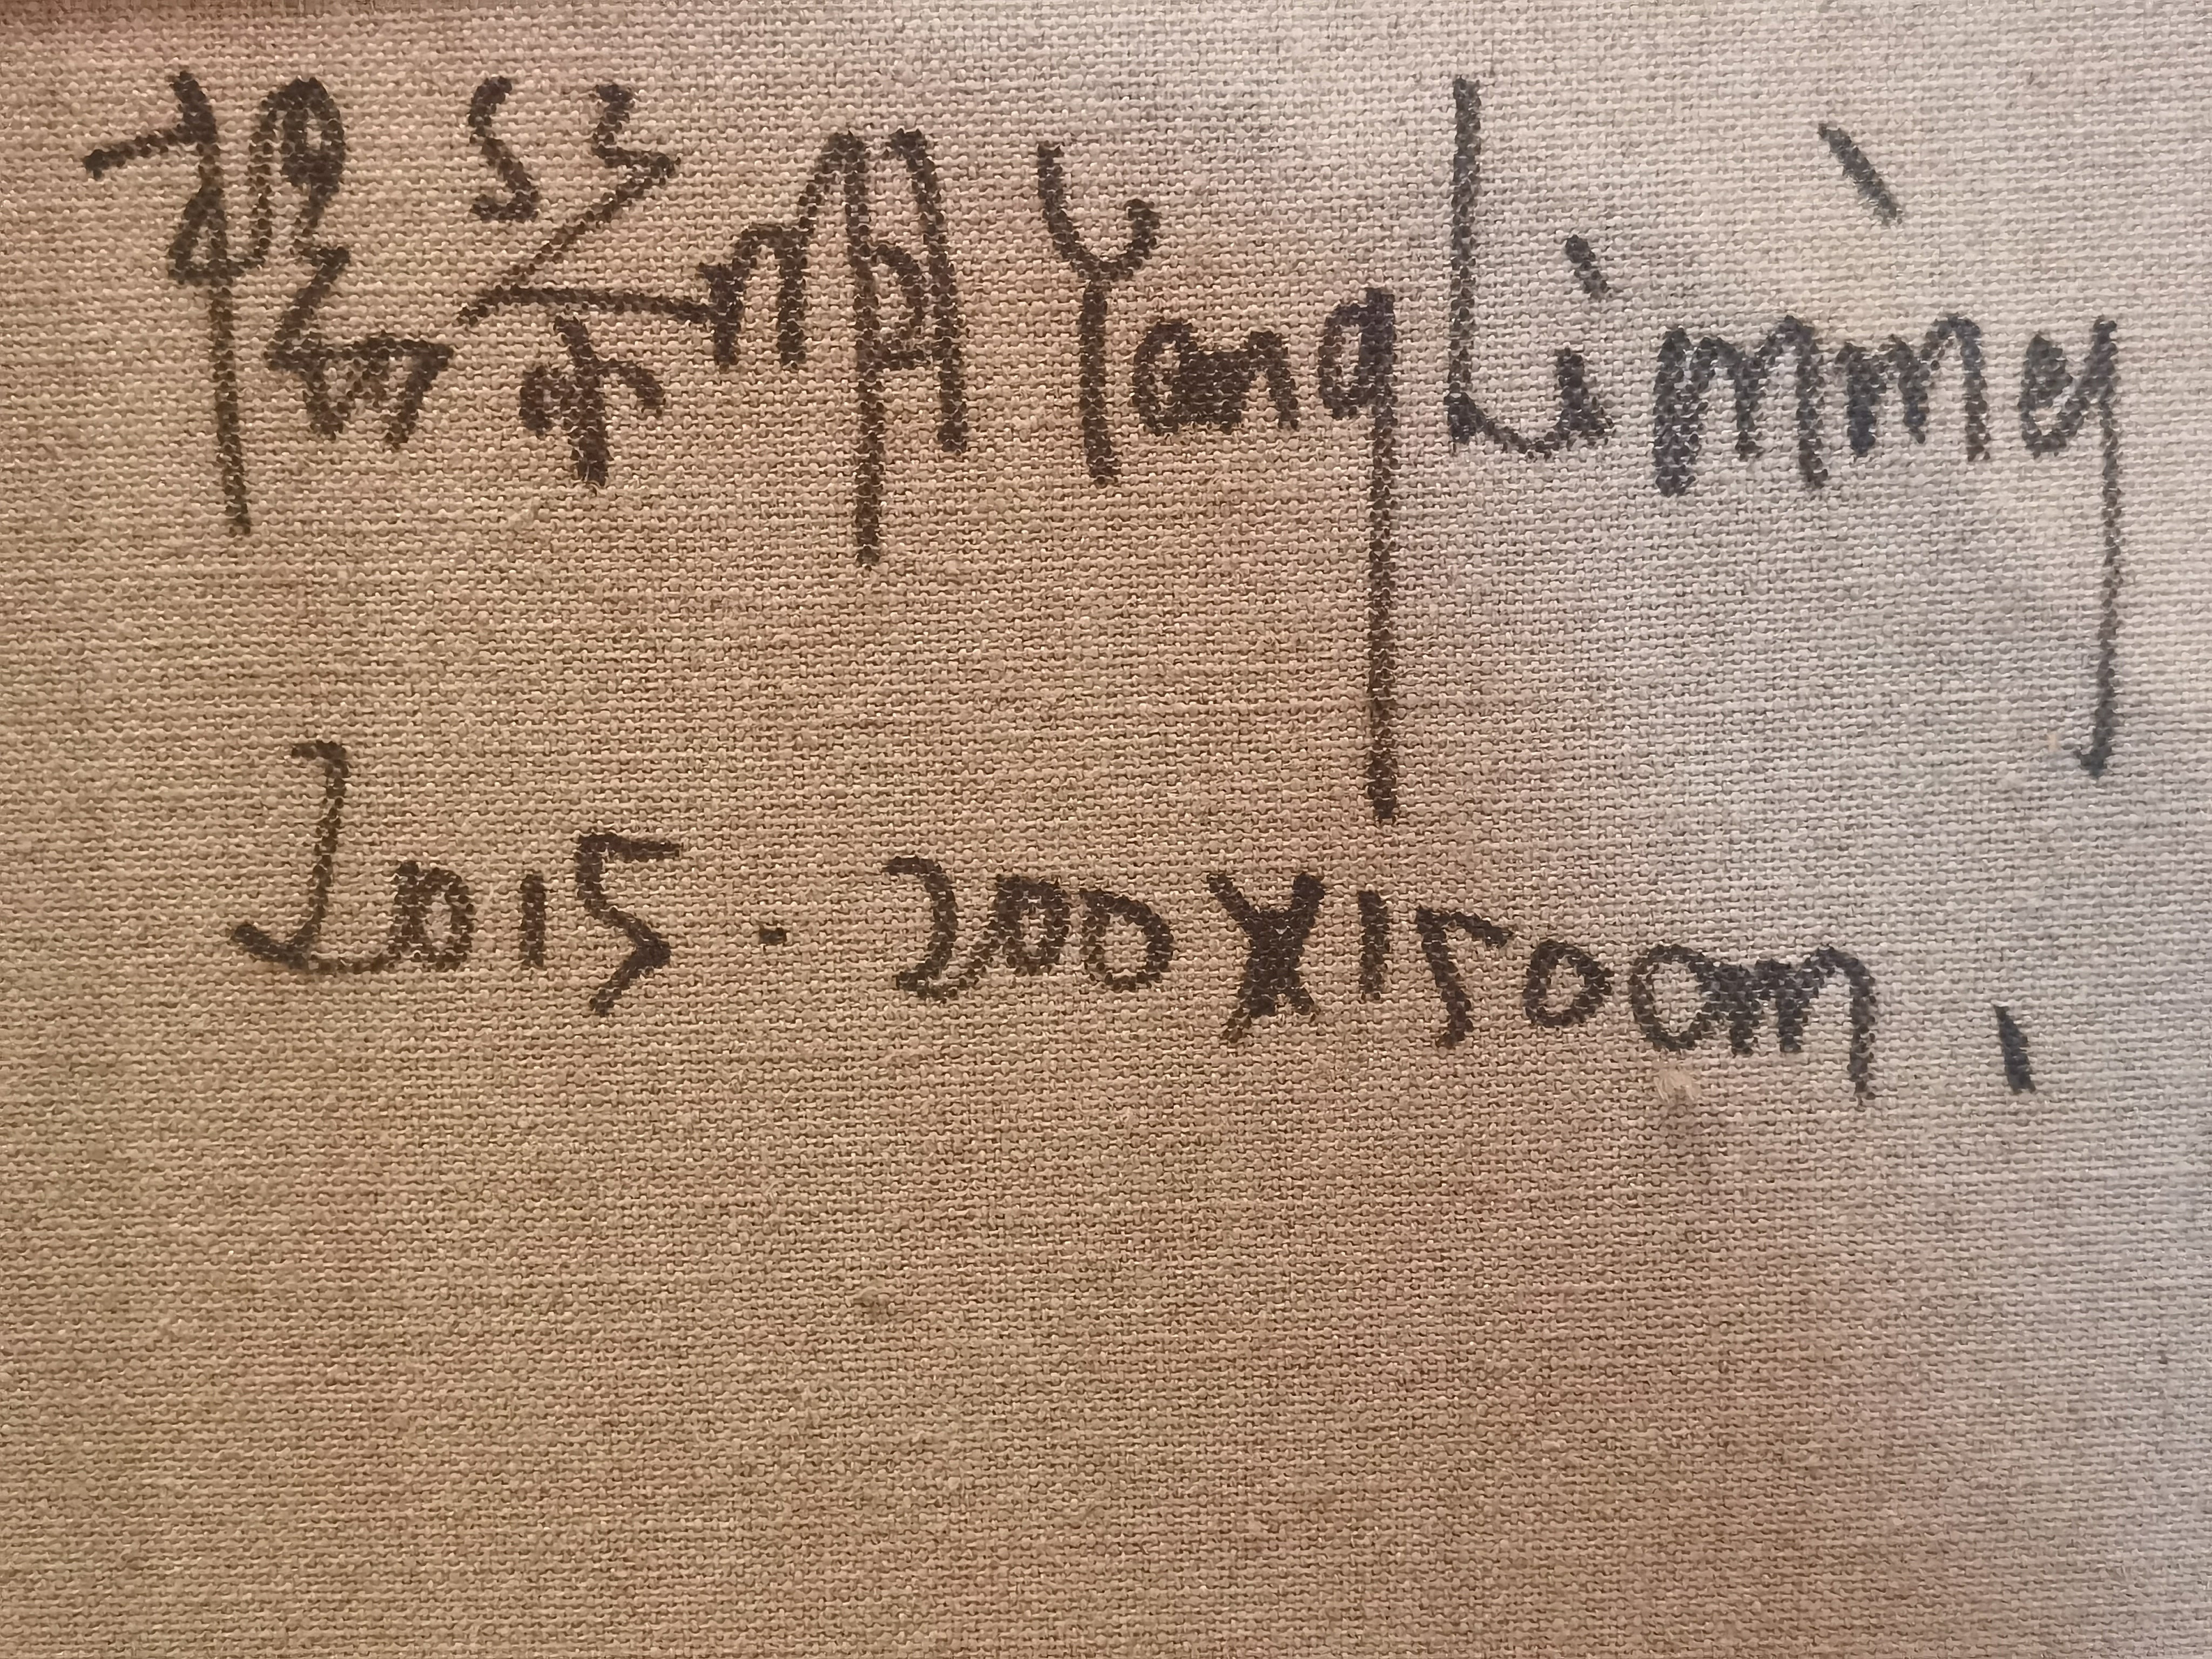 楊黎明 Yang Liming
2015 · 200X150cm.